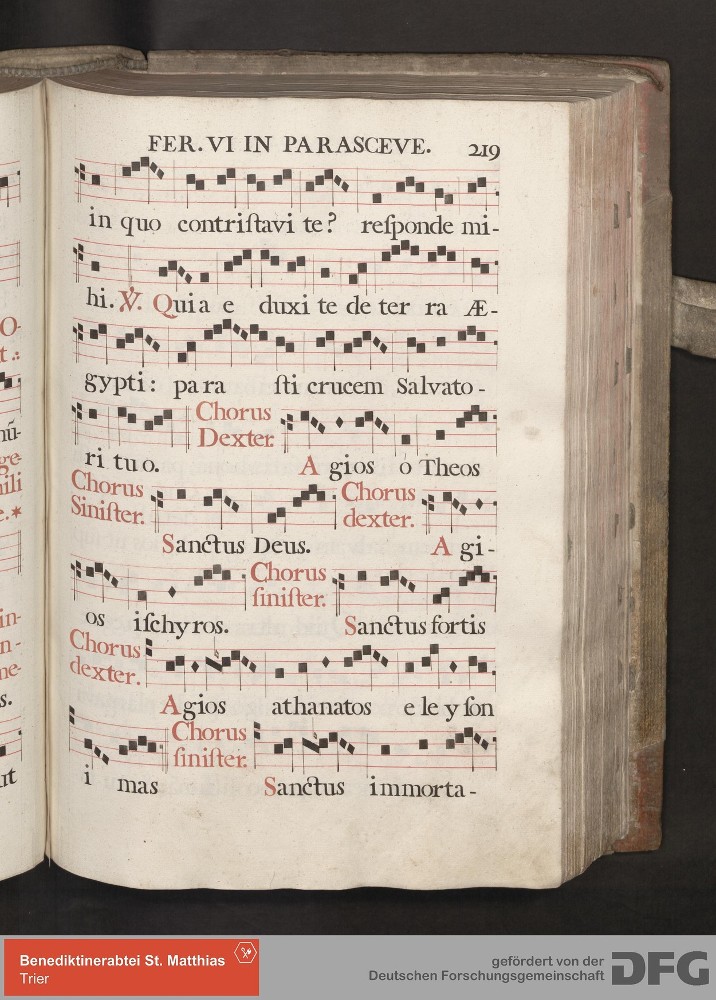 FER. VI IN PARASCEVE. 219
in quo contriſtavi te? reſponde mi-
hi. ℣. Quia e duxi te de ter ra Æ-
gypti: pa ra ſti crucem Salvato-
ri tu o. Chorus Dexter. A gios o Theos
Chorus Siniſter. Sanctus Deus. Chorus dexter. A gi-
os iſchyros. Chorus ſiniſter. Sanctus fortis
Chorus dexter. Agios athanatos e le y ſon
i mas Chorus ſiniſter. Sanctus immorta-
Benediktinerabtei St. Matthias
Trier
gefördert von der
Deutschen Forschungsgemeinschaft
DFG